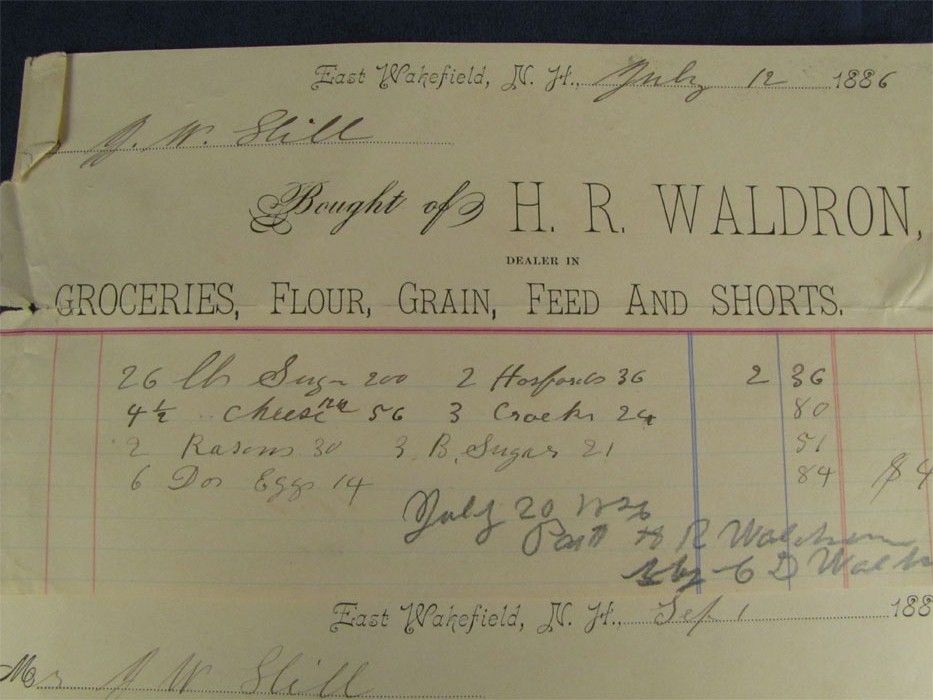 East Wakefield, N. H., July 12 1886
J. W. Hill
Bought of H. R. WALDRON,
DEALER IN
GROCERIES, FLOUR, GRAIN, FEED AND SHORTS.
26 lb Sugar 200 2 Hosfords 36 2 36
4 1/2 " Cheese 12 1/2 56 3 Crocks 24 80
2 Rasons 30 3 B. Sugar 21 51
6 Dos Eggs 14 84 $4
July 20 1886
H R Waldron
by C D
East Wakefield, N. H., Sep. 1 188
J W Hill